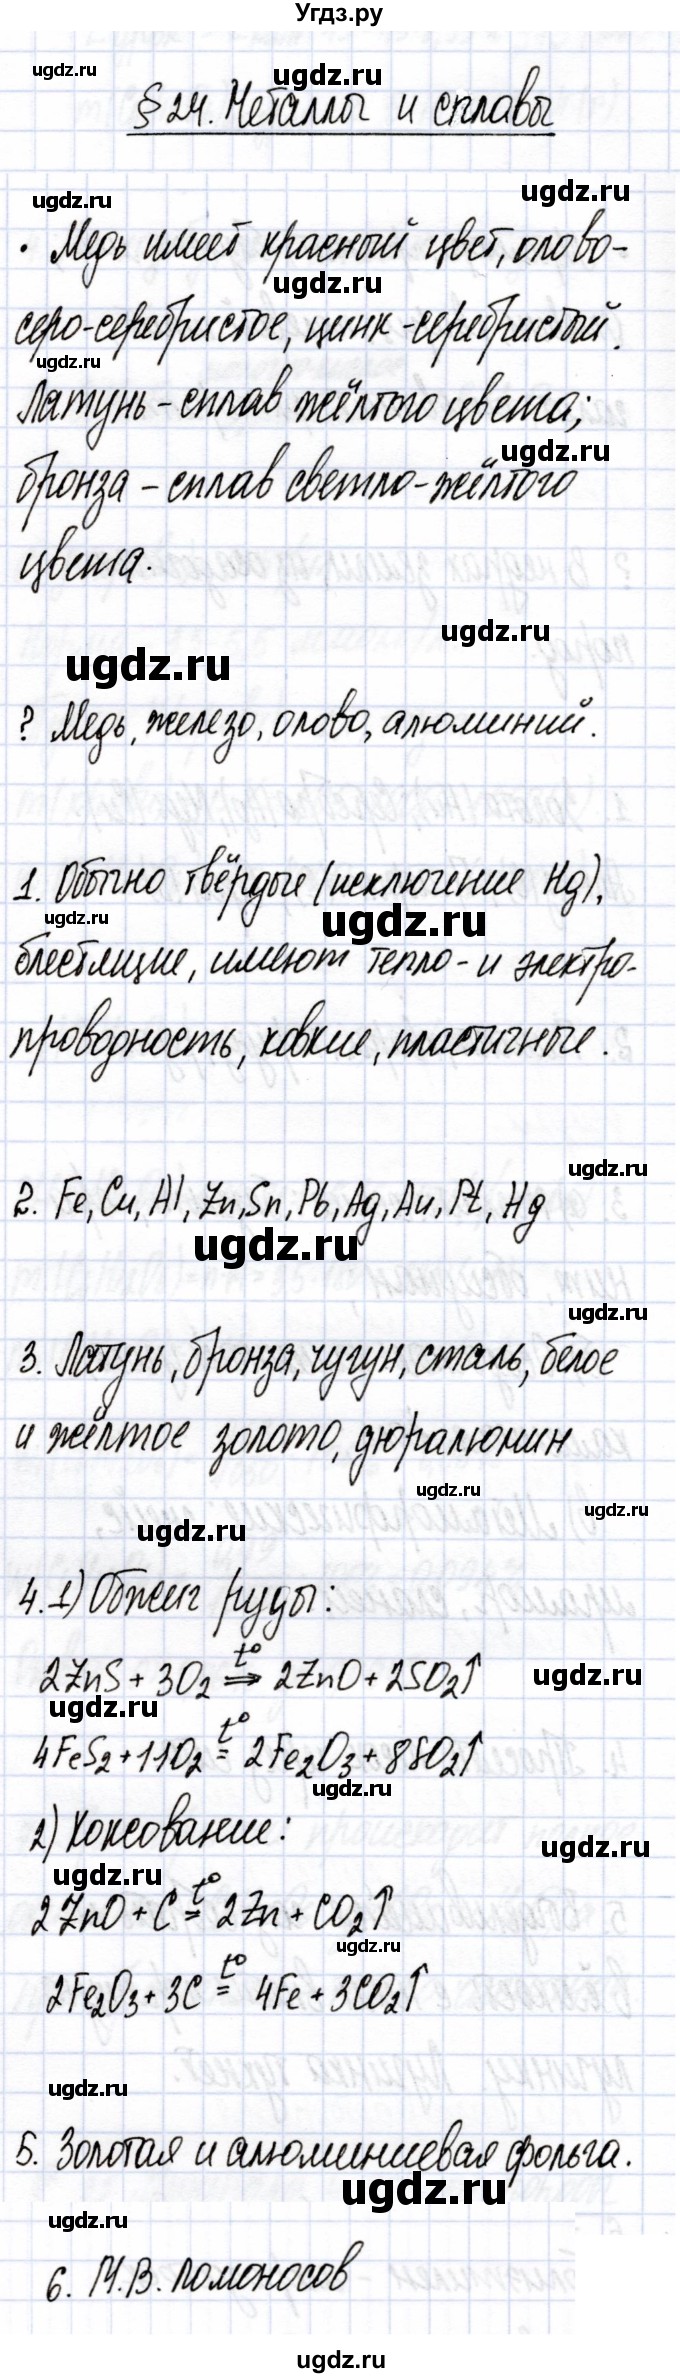 Угдз.ру
ugdz.ru
ugdz.ru
§ 24. Металлы и сплавы
ugdz.ru
ugdz.ru
• Медь имеет красный цвет, олово-
ugdz.ru
серо-серебристое, цинк - серебристый.
ugdz.ru
Латунь - сплав жёлтого цвета;
ugdz.ru
бронза - сплав светло-жёлтого
цвета.
ugdz.ru
ugdz.ru
? Медь, железо, олово, алюминий.
1. Обычно твёрдые (исключение Hg),
ugdz.ru
ugdz.ru
блестящие, имеют тепло- и электро-
проводность, ковкие, пластичные.
ugdz.ru
2. Fe, Cu, Al, Zn, Sn, Pb, Ag, Au, Pt, Hg
ugdz.ru
ugdz.ru
3. Латунь, бронза, чугун, сталь, белое
и жёлтое золото, дюралюмин
ugdz.ru
ugdz.ru
ugdz.ru
4. 1) Обжиг руды:
2ZnS + 3O₂ t°⇒ 2ZnO + 2SO₂↑
ugdz.ru
ugdz.ru
4FeS₂ + 11O₂ t°= 2Fe₂O₃ + 8SO₂↑
ugdz.ru
2) Коксование:
ugdz.ru
ugdz.ru
2ZnO + C t°= 2Zn + CO₂↑
ugdz.ru
2Fe₂O₃ + 3C t°= 4Fe + 3CO₂↑
ugdz.ru
5. Золотая и алюминиевая фольга.
ugdz.ru
ugdz.ru
6. М.В. Ломоносов
ugdz.ru